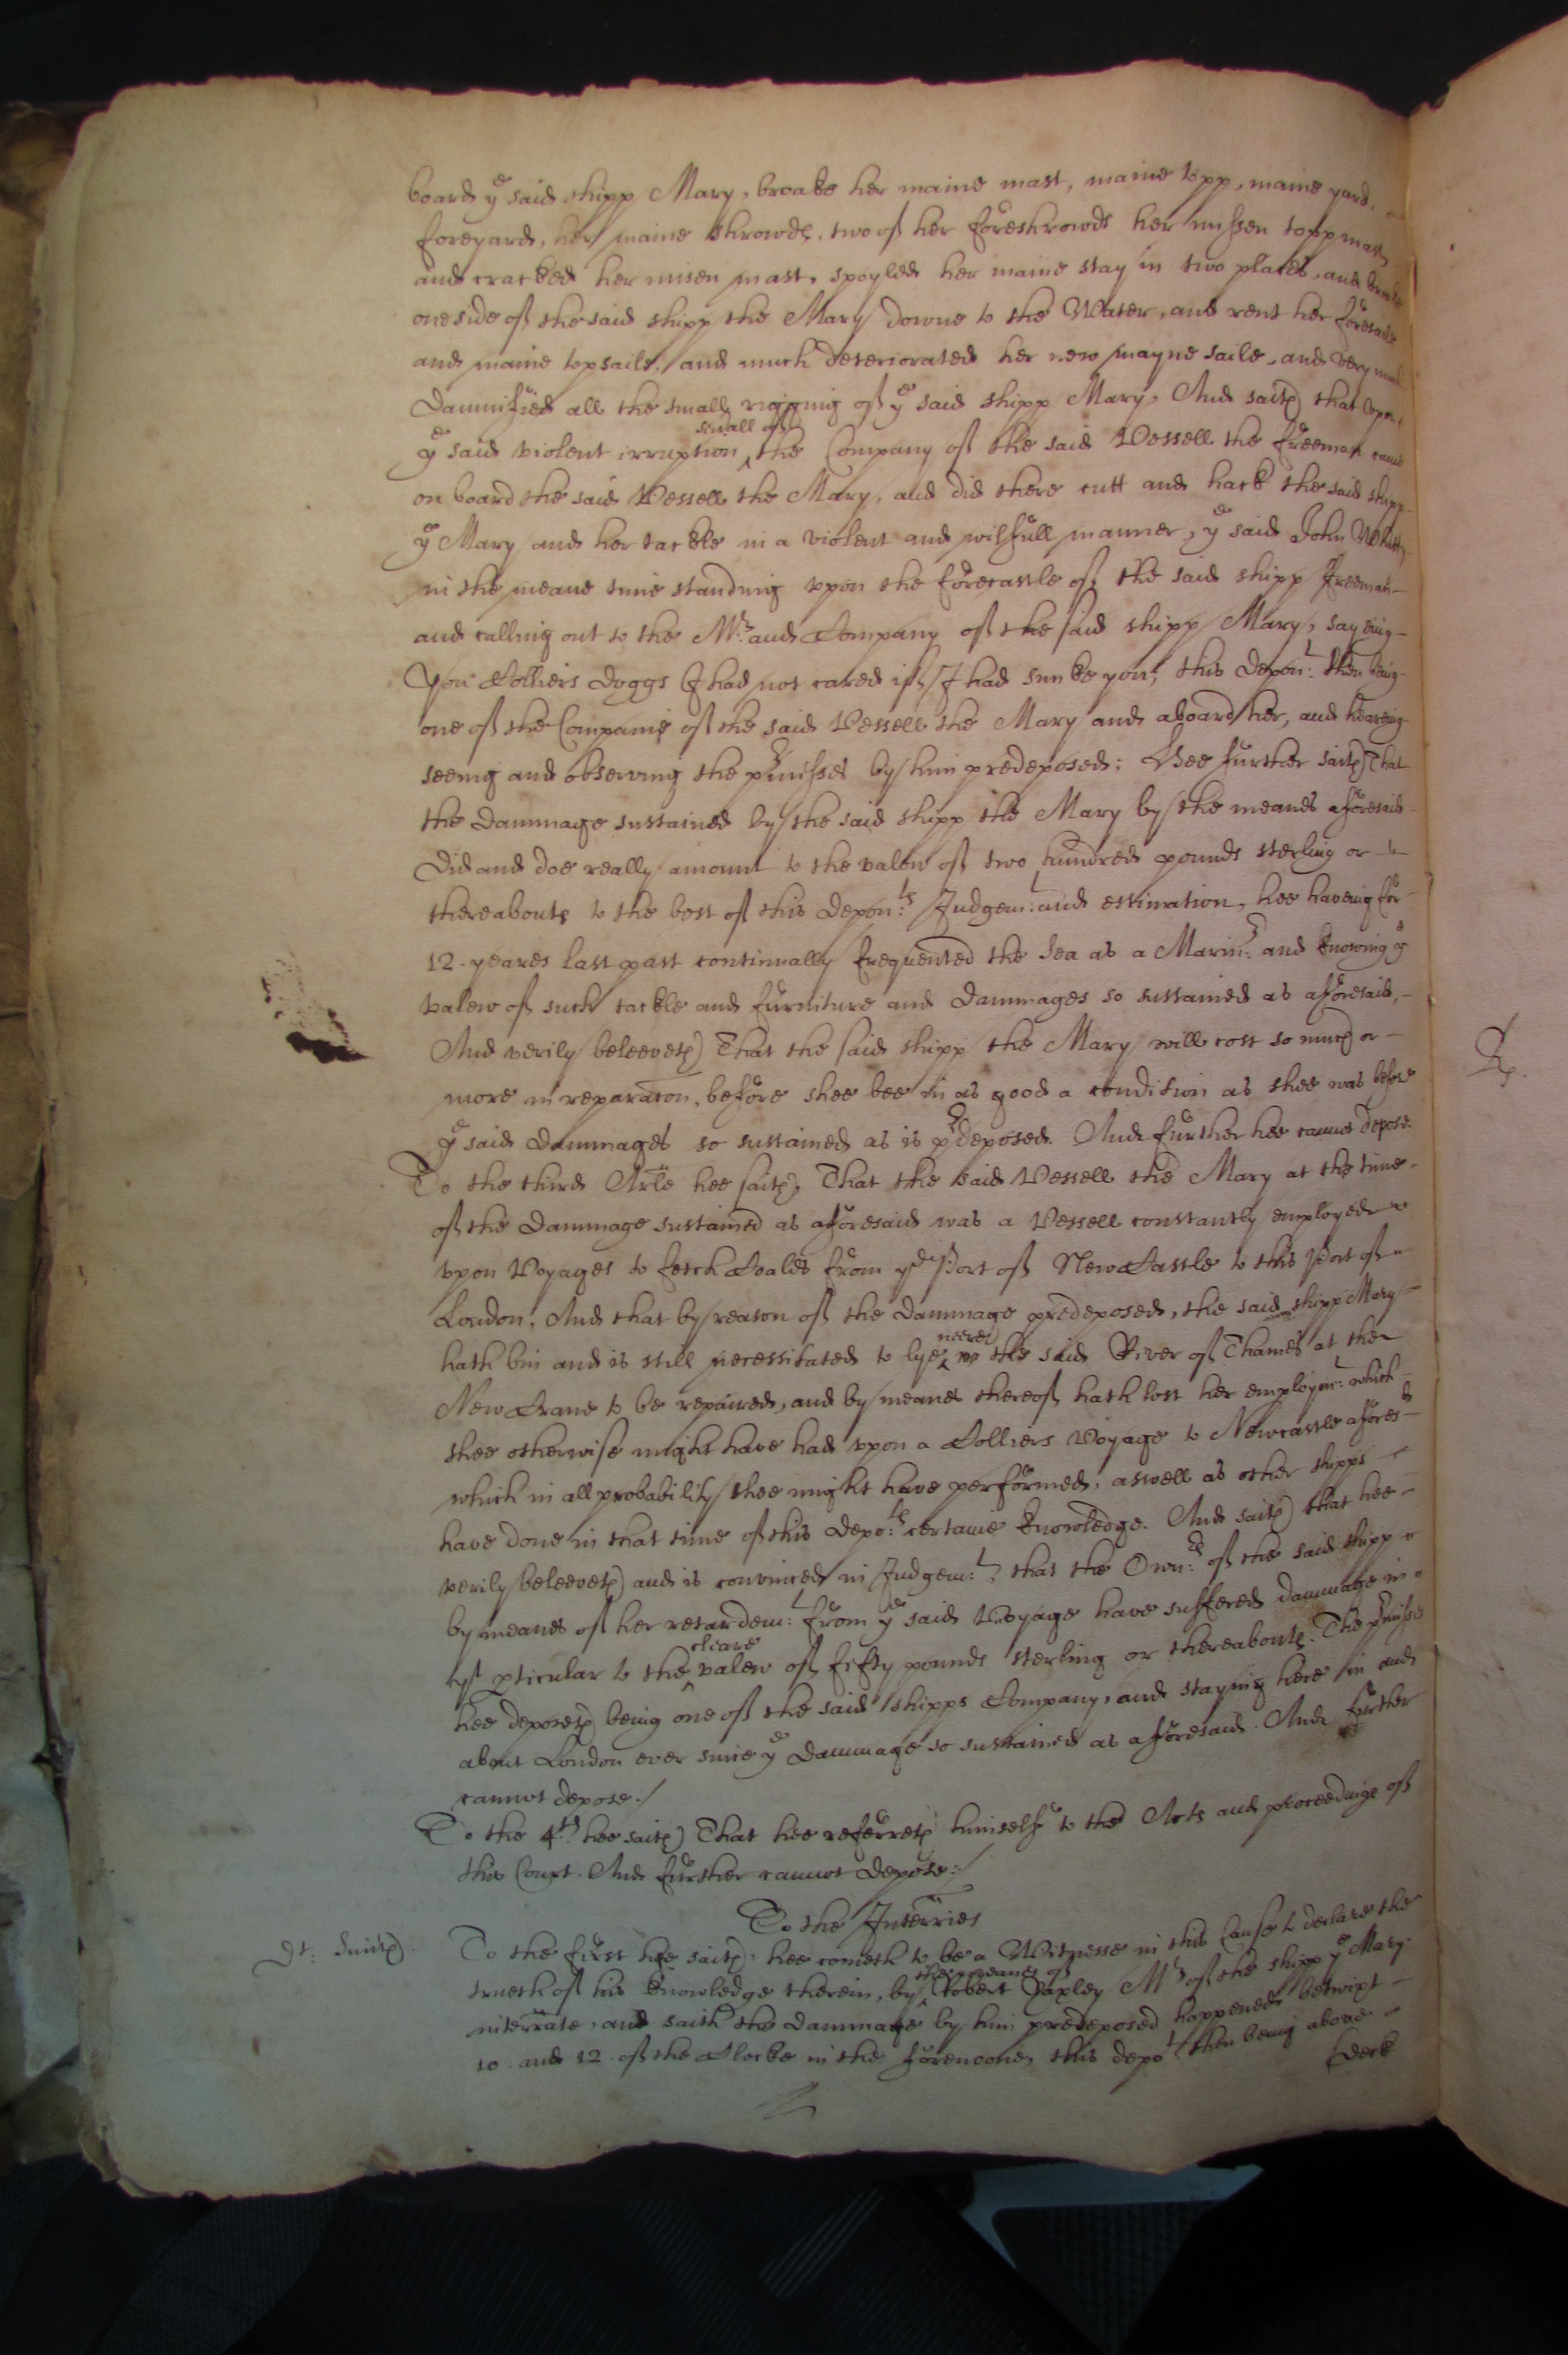 board ye said shipp Mary, broake her maine mast, maine topp, maine yard,
foreyard, her maine shrowds, two of her foreshrowds her missen topp mast
and cracked her misen mast, spoyled her maine stay in two places, and broake
one side of the said shipp the Mary downe to the Water, and rent her foresaile
and maine topsaile, and much deteriorated her new mayne saile, and very much
damnified all the small rigging of ye said shipp Mary, And saith that upon
ye said violent irruption severall of the Company of the said Vessell the Freeman came
on board the said Vessell the Mary, and did there cutt and hack the said shipp
ye Mary and her tackle in a violent and wilfull manner, ye said John Whitty
in the meane time standing upon the forecastle of the said shipp Freeman
and calling out to the Mr. and Company of the said shipp Mary, sayeing
You Colliers doggs I had not cared if I had sunke you, this depont: then being
one of the Companie of the said Vessell the Mary and aboard her, and heareing
seeing and observing the pmisses by him predeposed: Hee further saith That
the dammage sustained by the said shipp the Mary by the meanes aforesaid
did and doe really amount to the valew of two hundred pounds sterling or
thereabouts to the best of this deponts: Judgemt: and estimation, hee haveing for
12. yeares last past continually frequented the Sea as a Marinr: and knowing ye
valew of such tackle and furniture and dammages so sustained as aforesaid,
And verily beleeveth That the said shipp the Mary will cost so much or
more in reparacon, before shee bee in as good a condition as shee was before
ye said dammages so sustained as is pdeposed. And further hee cannot depose.
To the third Arle hee saith, That the said Vessell the Mary at the time
of the dammage sustained as aforesaid was a Vessell constantly employed
upon Voyages to fetch Coales from ye Port of New Castle to this Port of
London, And that by reason of the dammage predeposed, the said shipp Mary
hath bin and is still necessitated to lye neere the said River of Thames at the
New Crane to be repaired, and by meanes thereof hath lost her employmt: which
shee otherwise might have had upon a Colliers Voyage to Newcastle aforesd
which in all probability shee might have performed, aswell as other shipps
have done in that time of this depots: certaine knowledge. And saith that hee
verily beleeveth and is convinced in Judgemt:, that the Ownrs: of the said shipp
by meanes of her retardemt: from ye said Voyage have suffered dammage in
yt pticular to the cleare valew of fifty pounds sterling or thereabouts. The pmisses
hee deposeth being one of the said shipps Company, and staying here in and
about London ever since ye dammage so sustained as aforesaid. And further
cannot depose./
To the 4th hee saith That hee referreth himselfe to the Acts and proceedings of
this Court. And further cannot depose:/
To the Interries
dt: Smith. To the first hee saith, hee cometh to be a Witnesse in this Cause to declare the
trueth of his knowledge therein, by the meanes of Robert Yaxley Mr of the shipp ye Mary
interrate, and saith the dammage by him predeposed happened betwixt
10. and 12. of the Clocke in the forenoone, this depot then being above
deck